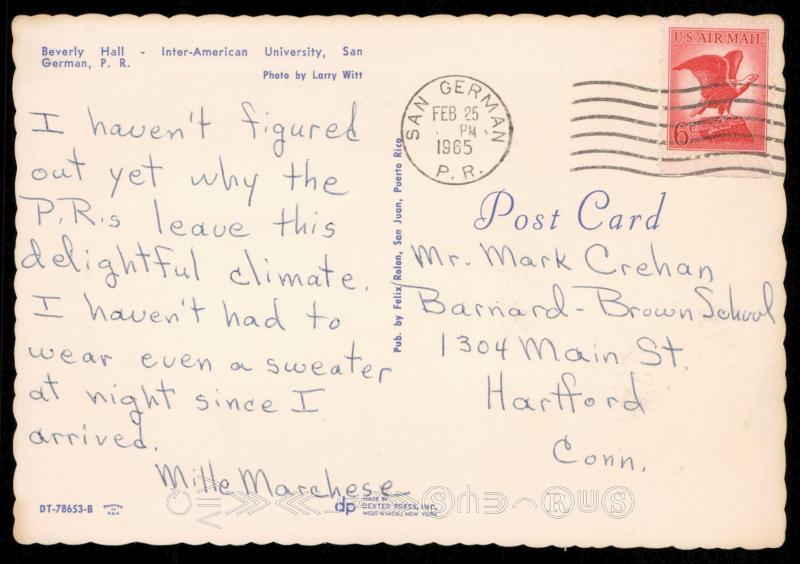 Beverly Hall - Inter-American University, San
German, P. R.
Photo by Larry Witt
I haven't figured
out yet why the
P.R.s leave this
delightful climate.
I haven't had to
wear even a sweater
at night since I
arrived.
Marchese
DT-78653-B
Pub. by Felix Rolon, San Juan, Puerto Rico
MADE BY
dp DEXTER PRESS, INC.
WEST NYACK, NEW YORK
SAN GERMAN
FEB 25
PM
1965
P. R.
U.S. AIR MAIL
6¢
Post Card
Mr. Mark Crehan
Barnard-Brown School
1304 Main St.
Hartford
Conn.